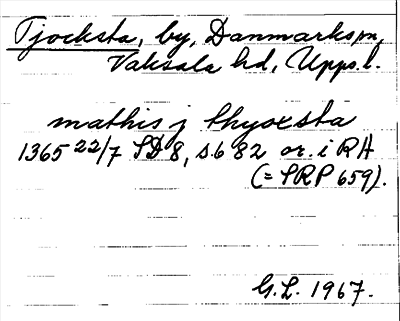 Tjocksta, by, Danmarks sn,
Vaksala hd, Uppl.
mathis j thyoxsta
1365 22/7 SD 8, s. 682 or. i RA
(= SRP 659).
G.L. 1967.